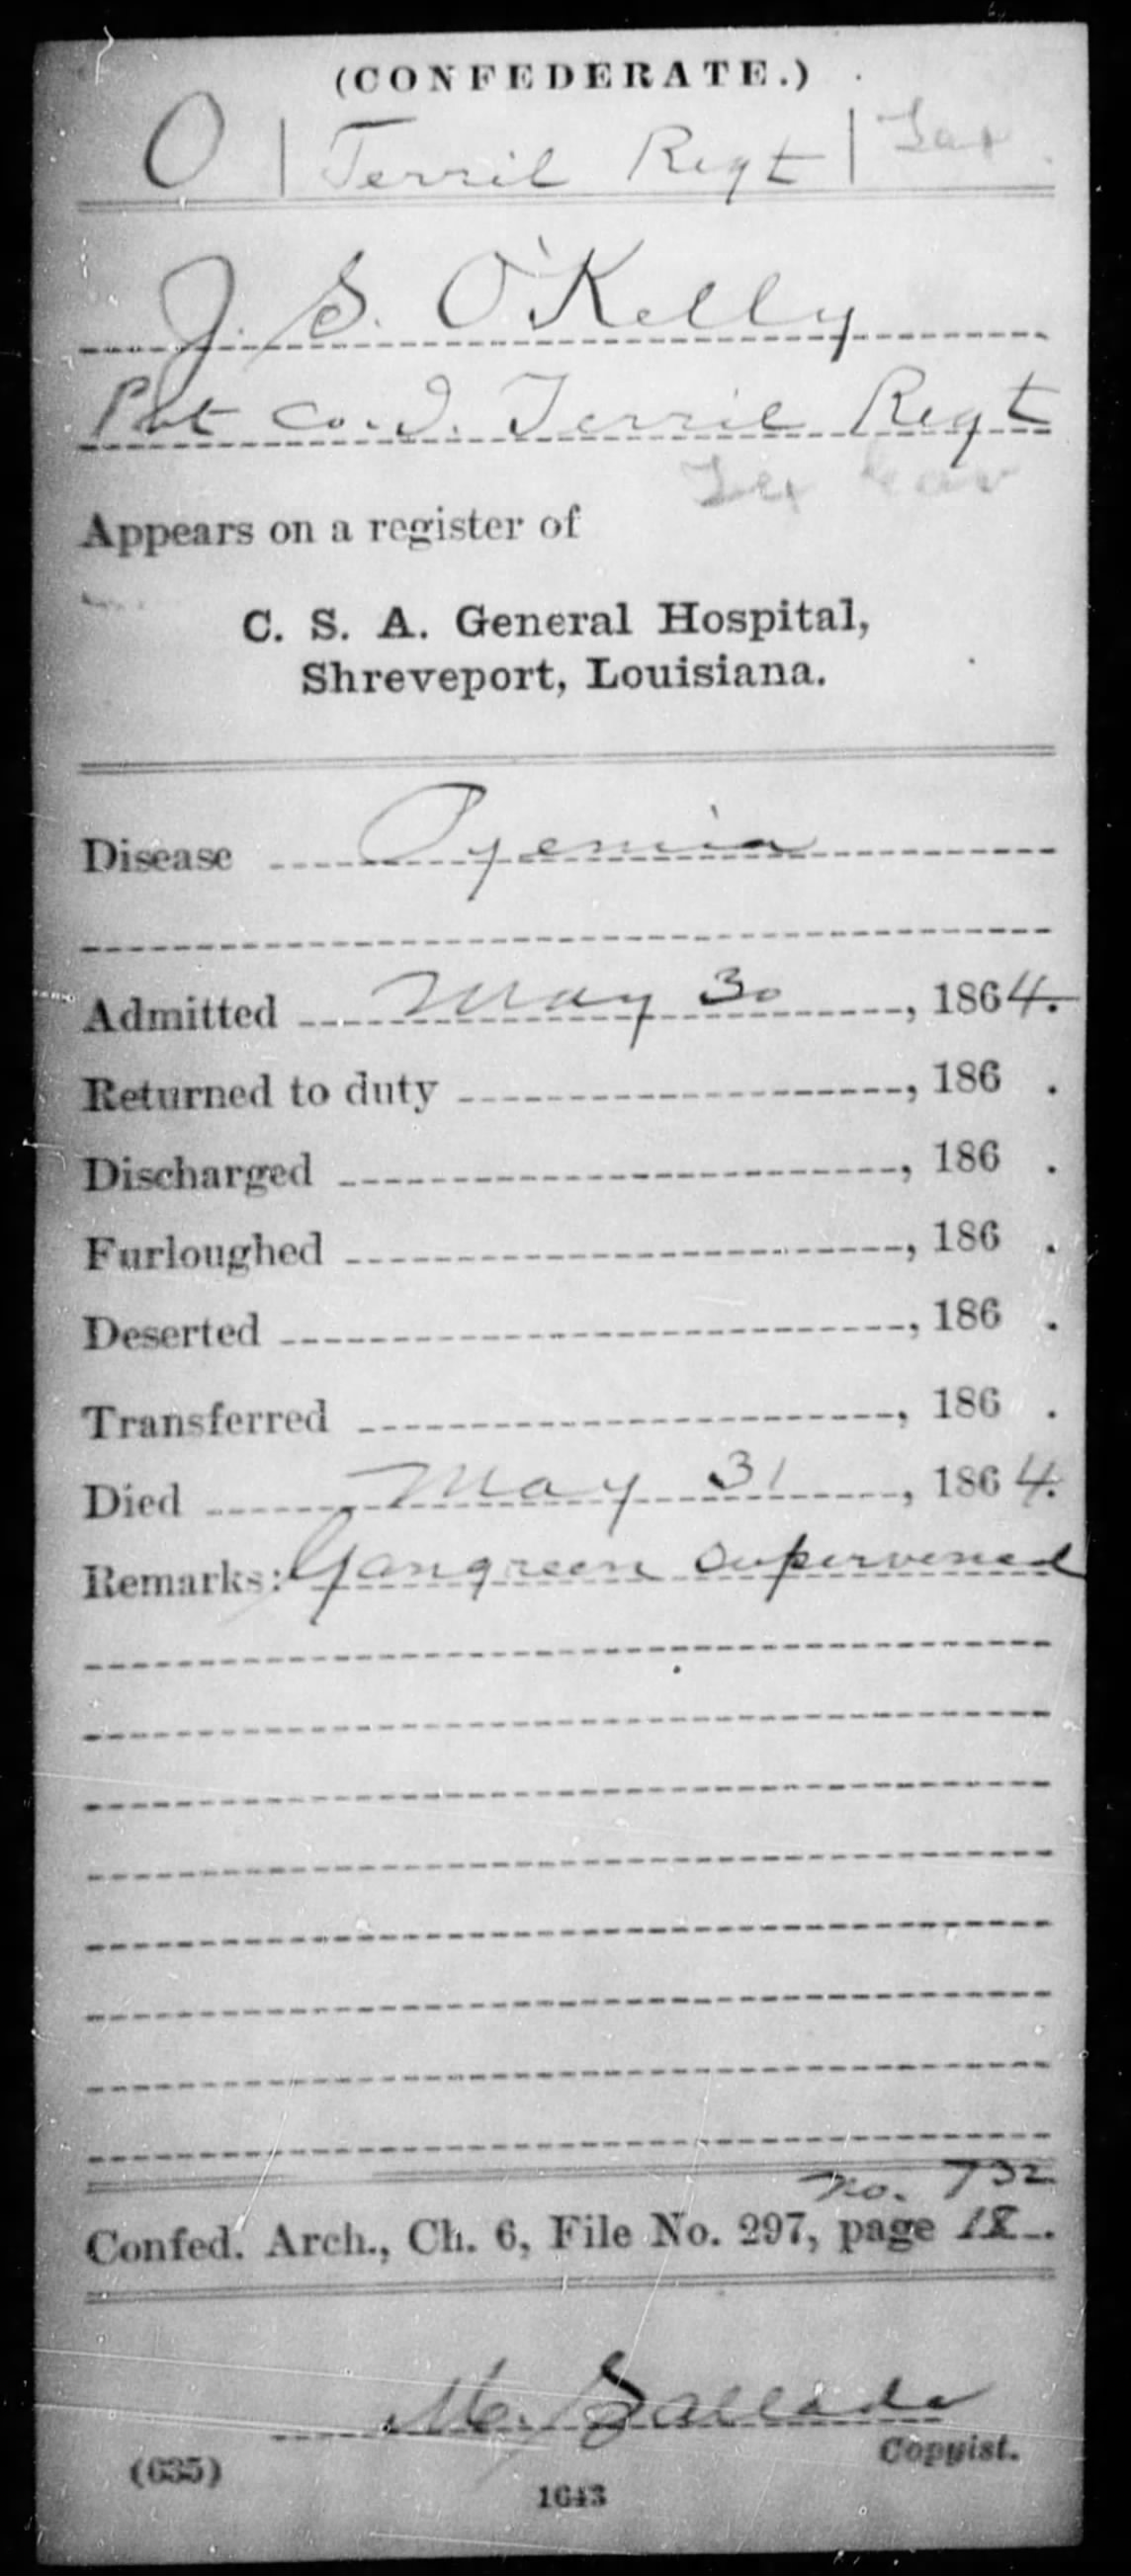 (CONFEDERATE.)
O | Terril Regt | Tex
J. S. O'Kelly
Pvt Co. I. Terril Regt
Tex Cav
Appears on a register of
C. S. A. General Hospital,
Shreveport, Louisiana.
Disease Pyemia
Admitted May 30, 1864.
Returned to duty , 186 .
Discharged , 186 .
Furloughed , 186 .
Deserted , 186 .
Transferred , 186 .
Died May 31, 1864.
Remarks: Gangreen supervened
no. 732
Confed. Arch., Ch. 6, File No. 297, page 18.
M.
Copyist.
(635)
1643